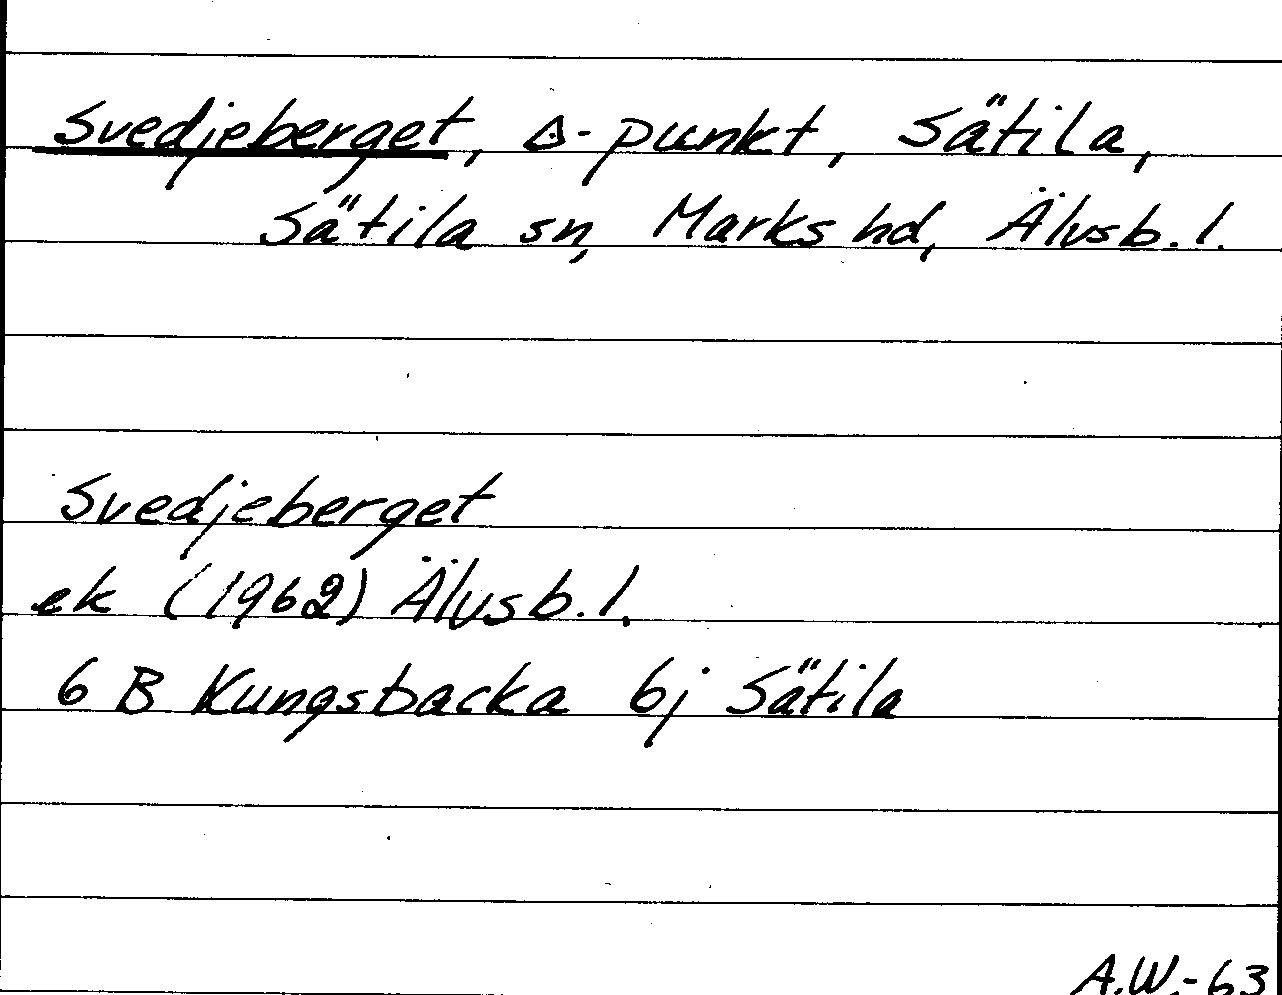 Svedjeberget, △-punkt, Sätila,
Sätila sn, Marks hd, Älvsb. l.
Svedjeberget
ek (1962) Älvsb. l.
6 B Kungsbacka 6j Sätila
A.W.-63